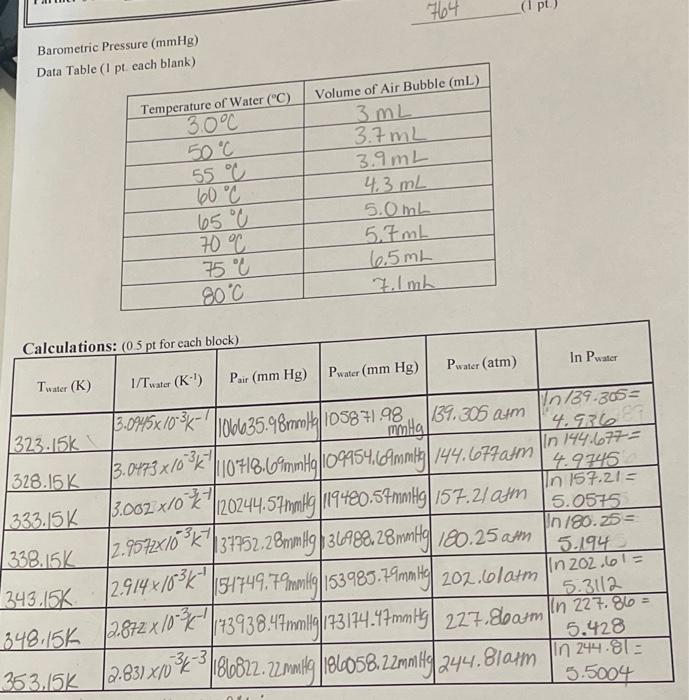 764 (1 pt.)
Barometric Pressure (mmHg)
Data Table (1 pt. each blank)
Temperature of Water (°C) Volume of Air Bubble (mL)
3.0°C 3 mL
50°C 3.7mL
55 °C 3.9mL
60°C 4.3 mL
65°C 5.0mL
70 °C 5.7mL
75°C 6.5mL
80°C 7.1mL
Calculations: (0.5 pt for each block)
Twater (K) 1/Twater (K-1) Pair (mm Hg) Pwater (mm Hg) Pwater (atm) ln Pwater
323.15K 3.0945x10-3K-1 106635.98mmHg 105871.98 mmHg 139.305 atm ln 139.305= 4.936
328.15K 3.0473x10-3K-1 110718.69mmHg 109954.69mmHg 144.677atm ln 144.677= 4.9745
333.15K 3.002x10-3K-1 120244.57mmHg 119480.57mmHg 157.21atm ln 157.21= 5.0575
338.15K 2.9572x10-3K-1 137752.28mmHg 136988.28mmHg 180.25atm ln 180.25= 5.194
343.15K 2.914x10-3K-1 154749.79mmHg 153985.79mmHg 202.61atm ln 202.61= 5.3112
348.15K 2.872x10-3K-1 173938.47mmHg 173174.47mmHg 227.86atm ln 227.86= 5.428
353.15K 2.831x10-3K-3 186822.22mmHg 186058.22mmHg 244.81atm ln 244.81= 5.5004